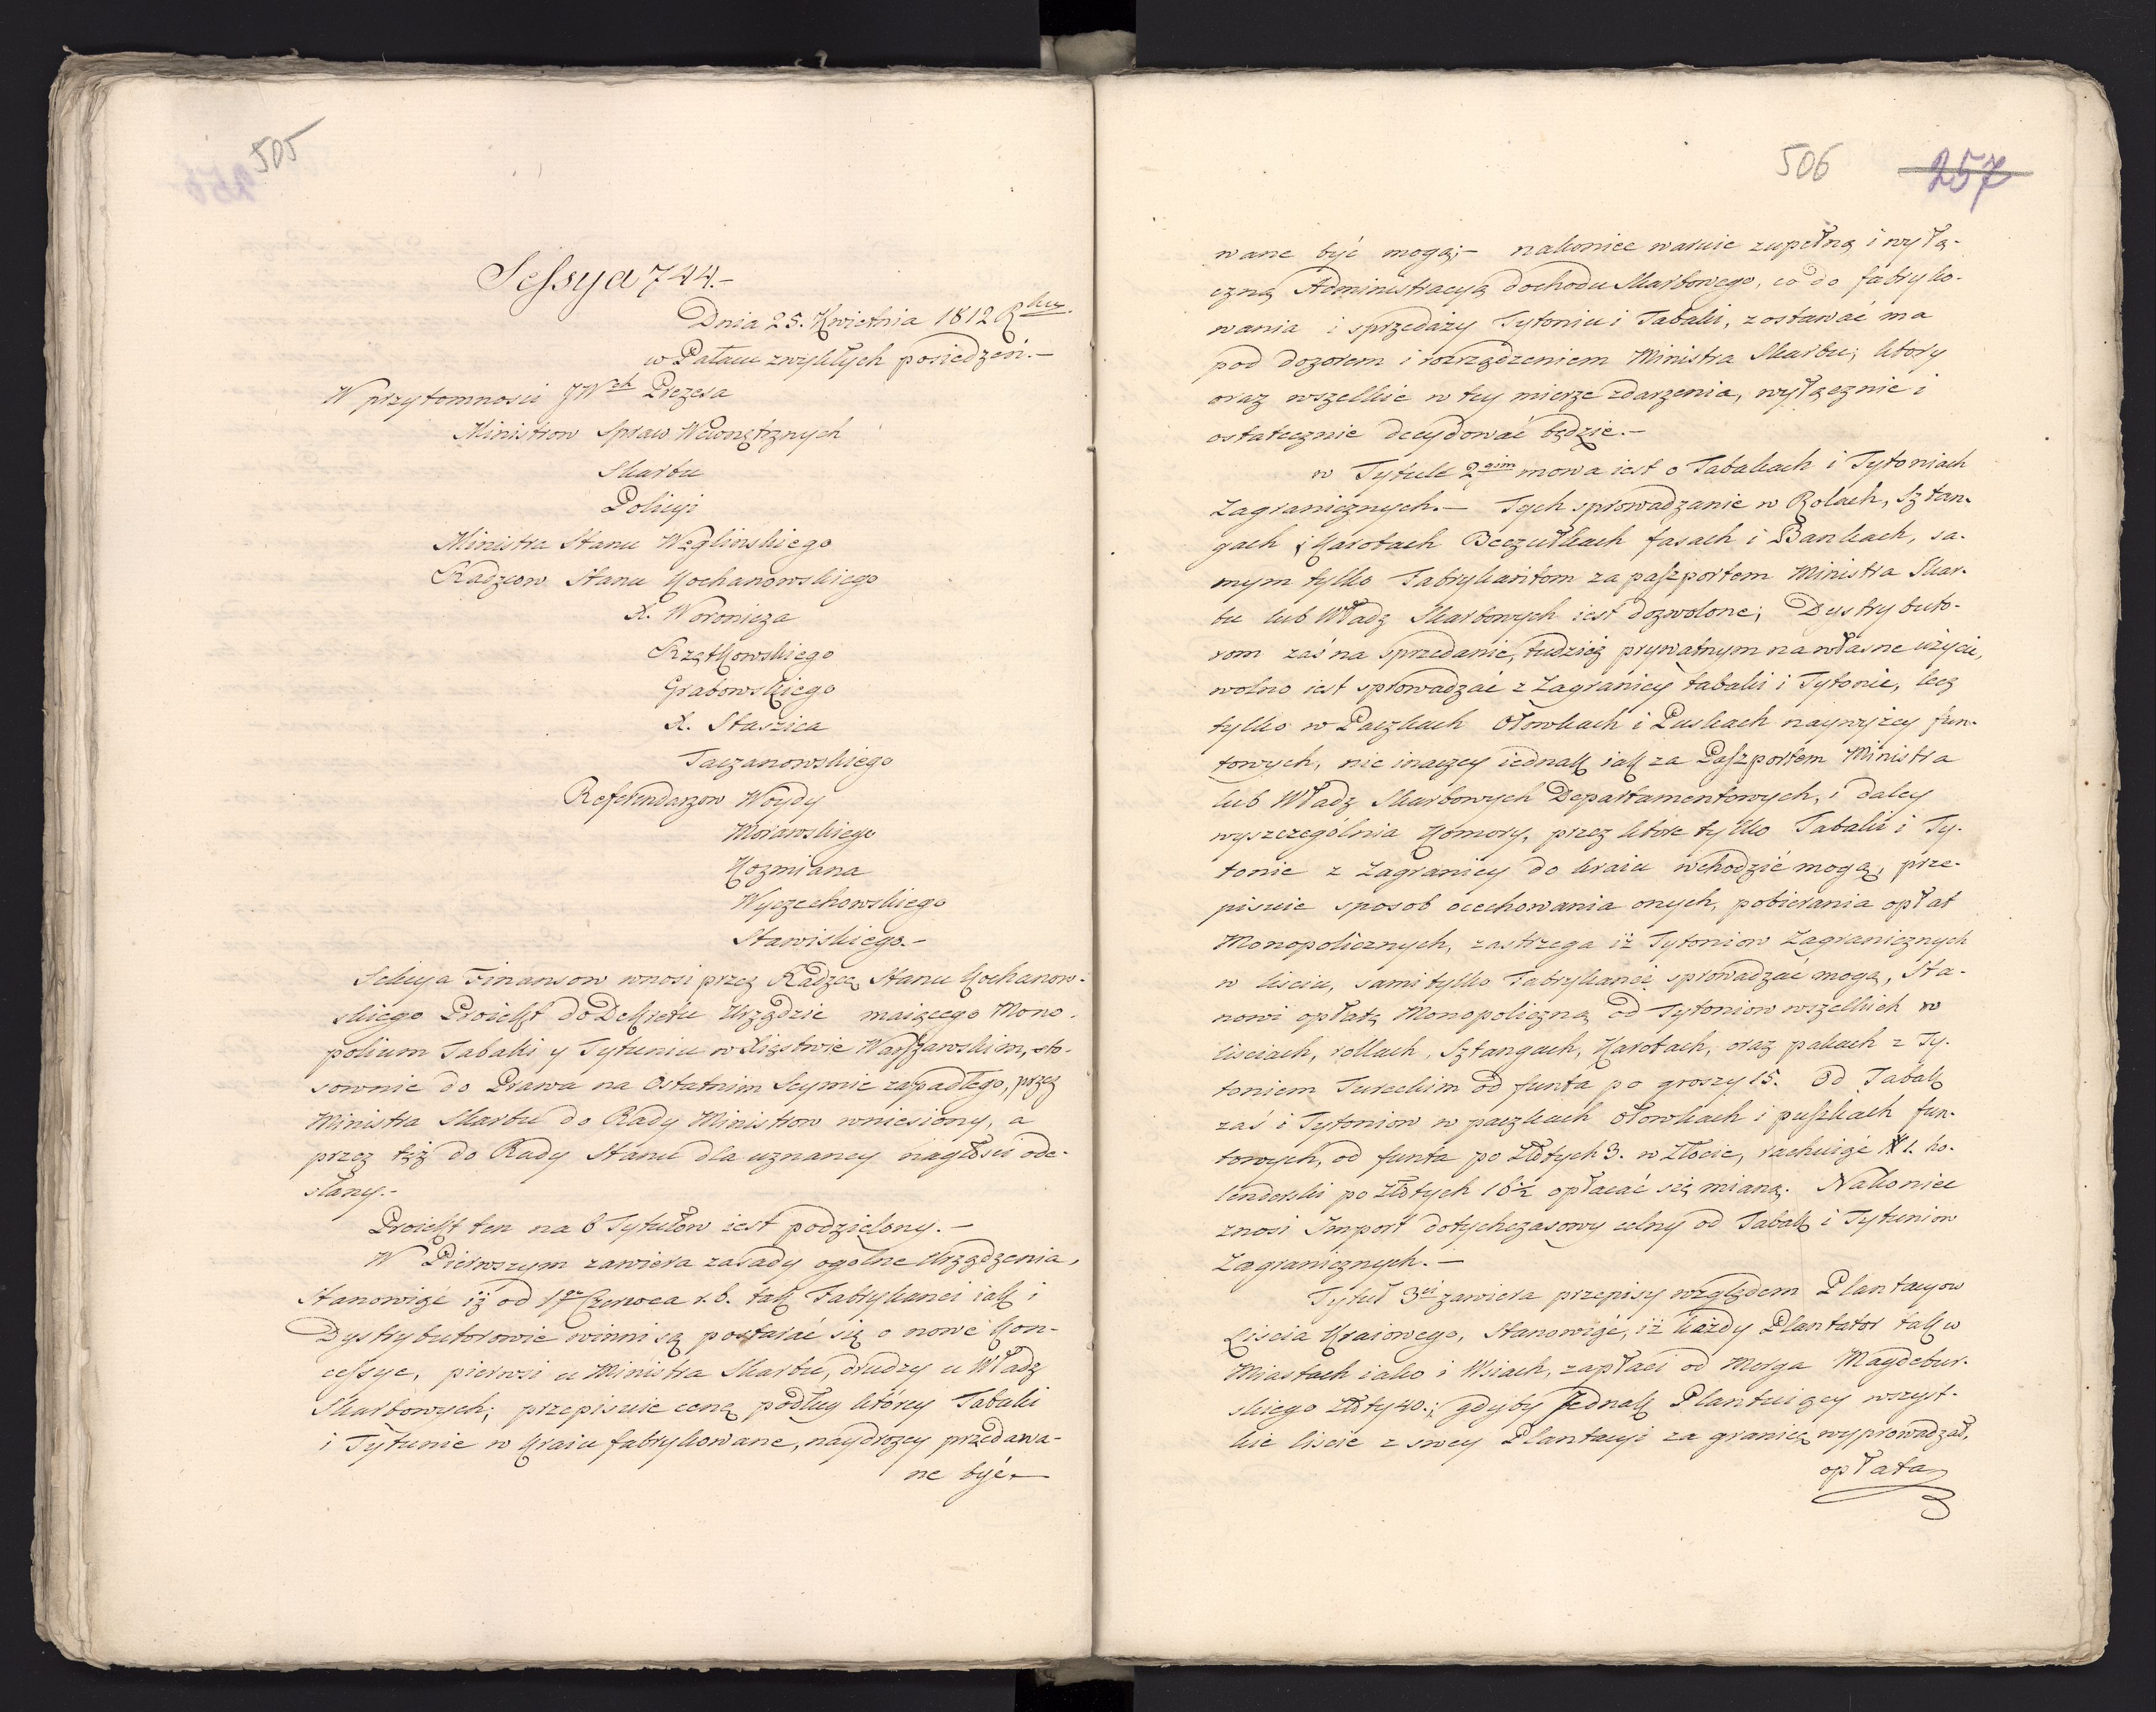 505
Sessya 744.-
Dnia 25. Kwietnia 1812 Rku.
w Pałacu zwykłych posiedzeń.-
W przytomnosci JWch Prezesa
Ministrow Spraw Wewnętrznych
Skarbu
Policyi
Ministra Stanu Węglinskiego
Radzcow Stanu Kochanowskiego
X. Woronicza
Rzętkowskiego
Grabowskiego
X. Staszica
Taczanowskiego
Referendarzow Woydy
Morawskiego
Kozmiana
Wyczechowskiego
Stawiskiego.-
Sekcya Finansow wnosi przez Radzcę Stanu Kochanow-
skiego Proiekt do Dekretu Urządzić maiącego Mono-
polium Tabaki y Tytuniu w Xięstwie Warszawskim, sto-
sownie do Prawa na Ostatnim Seymie zapadłego, przez
Ministra Skarbu do Rady Ministrow wniesiony, a
przez tęż do Rady Stanu dla uznaney nagłosci ode-
słany.-
Proiekt ten na 6 Tytułow iest podzielony.-
W Pierwszym zawiera zasady ogolne Urządzenia,
Stanowiąc iż od 1go Czerwca r. b. tak Fabrykanci iak i
Dystrybutorowie winni są postarać się o nowe Kon-
cessye, pierwsi u Ministra Skarbu, drudzy u Władz
Skarbowych; przepisuie cenę podług którey Tabaki
i Tytunie w Kraiu fabrykowane, naydrożey przedawa-
ne być.-
506 257
wane być mogą;- nakoniec waruie zupełną i wyłą-
czną Administracyą dochodu Skarbowego, co do fabryko-
wania i sprzedaży Tytoniu i Tabaki, zostawać ma
pod dozorem i rozrządzeniem Ministra Skarbu; ktory
oraz wszelkie w tey mierze zdarzenia, wyłącznie i
ostatecznie decydować będzie.-
w Tytule 2gim mowa iest o Tabakach i Tytoniach
Zagranicznych.- Tych sprowadzanie w Rolach, Sztan-
gach i Karotach Beczułkach fasach i Bankach, sa-
mym tylko Fabrykantom za paszportem Ministra Skar-
bu lub Władz Skarbowych iest dozwolone; Dystrybuto-
rom zaś na sprzedanie, tudzież prywatnym na własne użycie,
wolno iest sprowadzać z Zagranicy tabaki i Tytonie, lecz
tylko w Paczkach Ołowkach i Puskach naywyżey fun-
towych, nie inaczey iednak iak za Paszportem Ministra
lub Władz Skarbowych Departamentowych, i daley
wyszczególnia Komory, przez ktore tylko Tabaki i Ty-
tonie z Zagranicy do kraiu wchodzić mogą, prze-
pisuie sposob ocechowania onych, pobierania opłat
Monopolicznych, zastrzega iż Tytoniow Zagranicznych
w lisciu, sami tylko Fabrykanci sprowadzać mogą, Sta-
nowi opłatę Monopoliczną od Tytoniow wszelkich w
lisciach, rollach, Sztangach, Karotach, oraz pakach z Ty-
toniem Tureckim od funta po groszy 15. Od Tabak
zaś i Tytoniow w paczkach ołowkach i puszkach fun-
towych, od funta po Złotych 3. w Złocie, rachuiąc # 1. ho-
lenderski po Złotych 16½ opłacać się mianą. Nakoniec
znosi Import dotychczasowy celny od Tabak i Tytuniow
Zagranicznych.-
Tytuł 3ci zawiera przepisy względem Plantacyow
Liscia Kraiowego, Stanowiąc, iż każdy Plantator tak w
Miastach iako i Wsiach, zapłaci od Morga Magdebur-
skiego Złoty 40.; gdyby Jednak Plantuiący wszyst-
kie liscie z swey Plantacyi za granicę wyprowadzał,
opłata